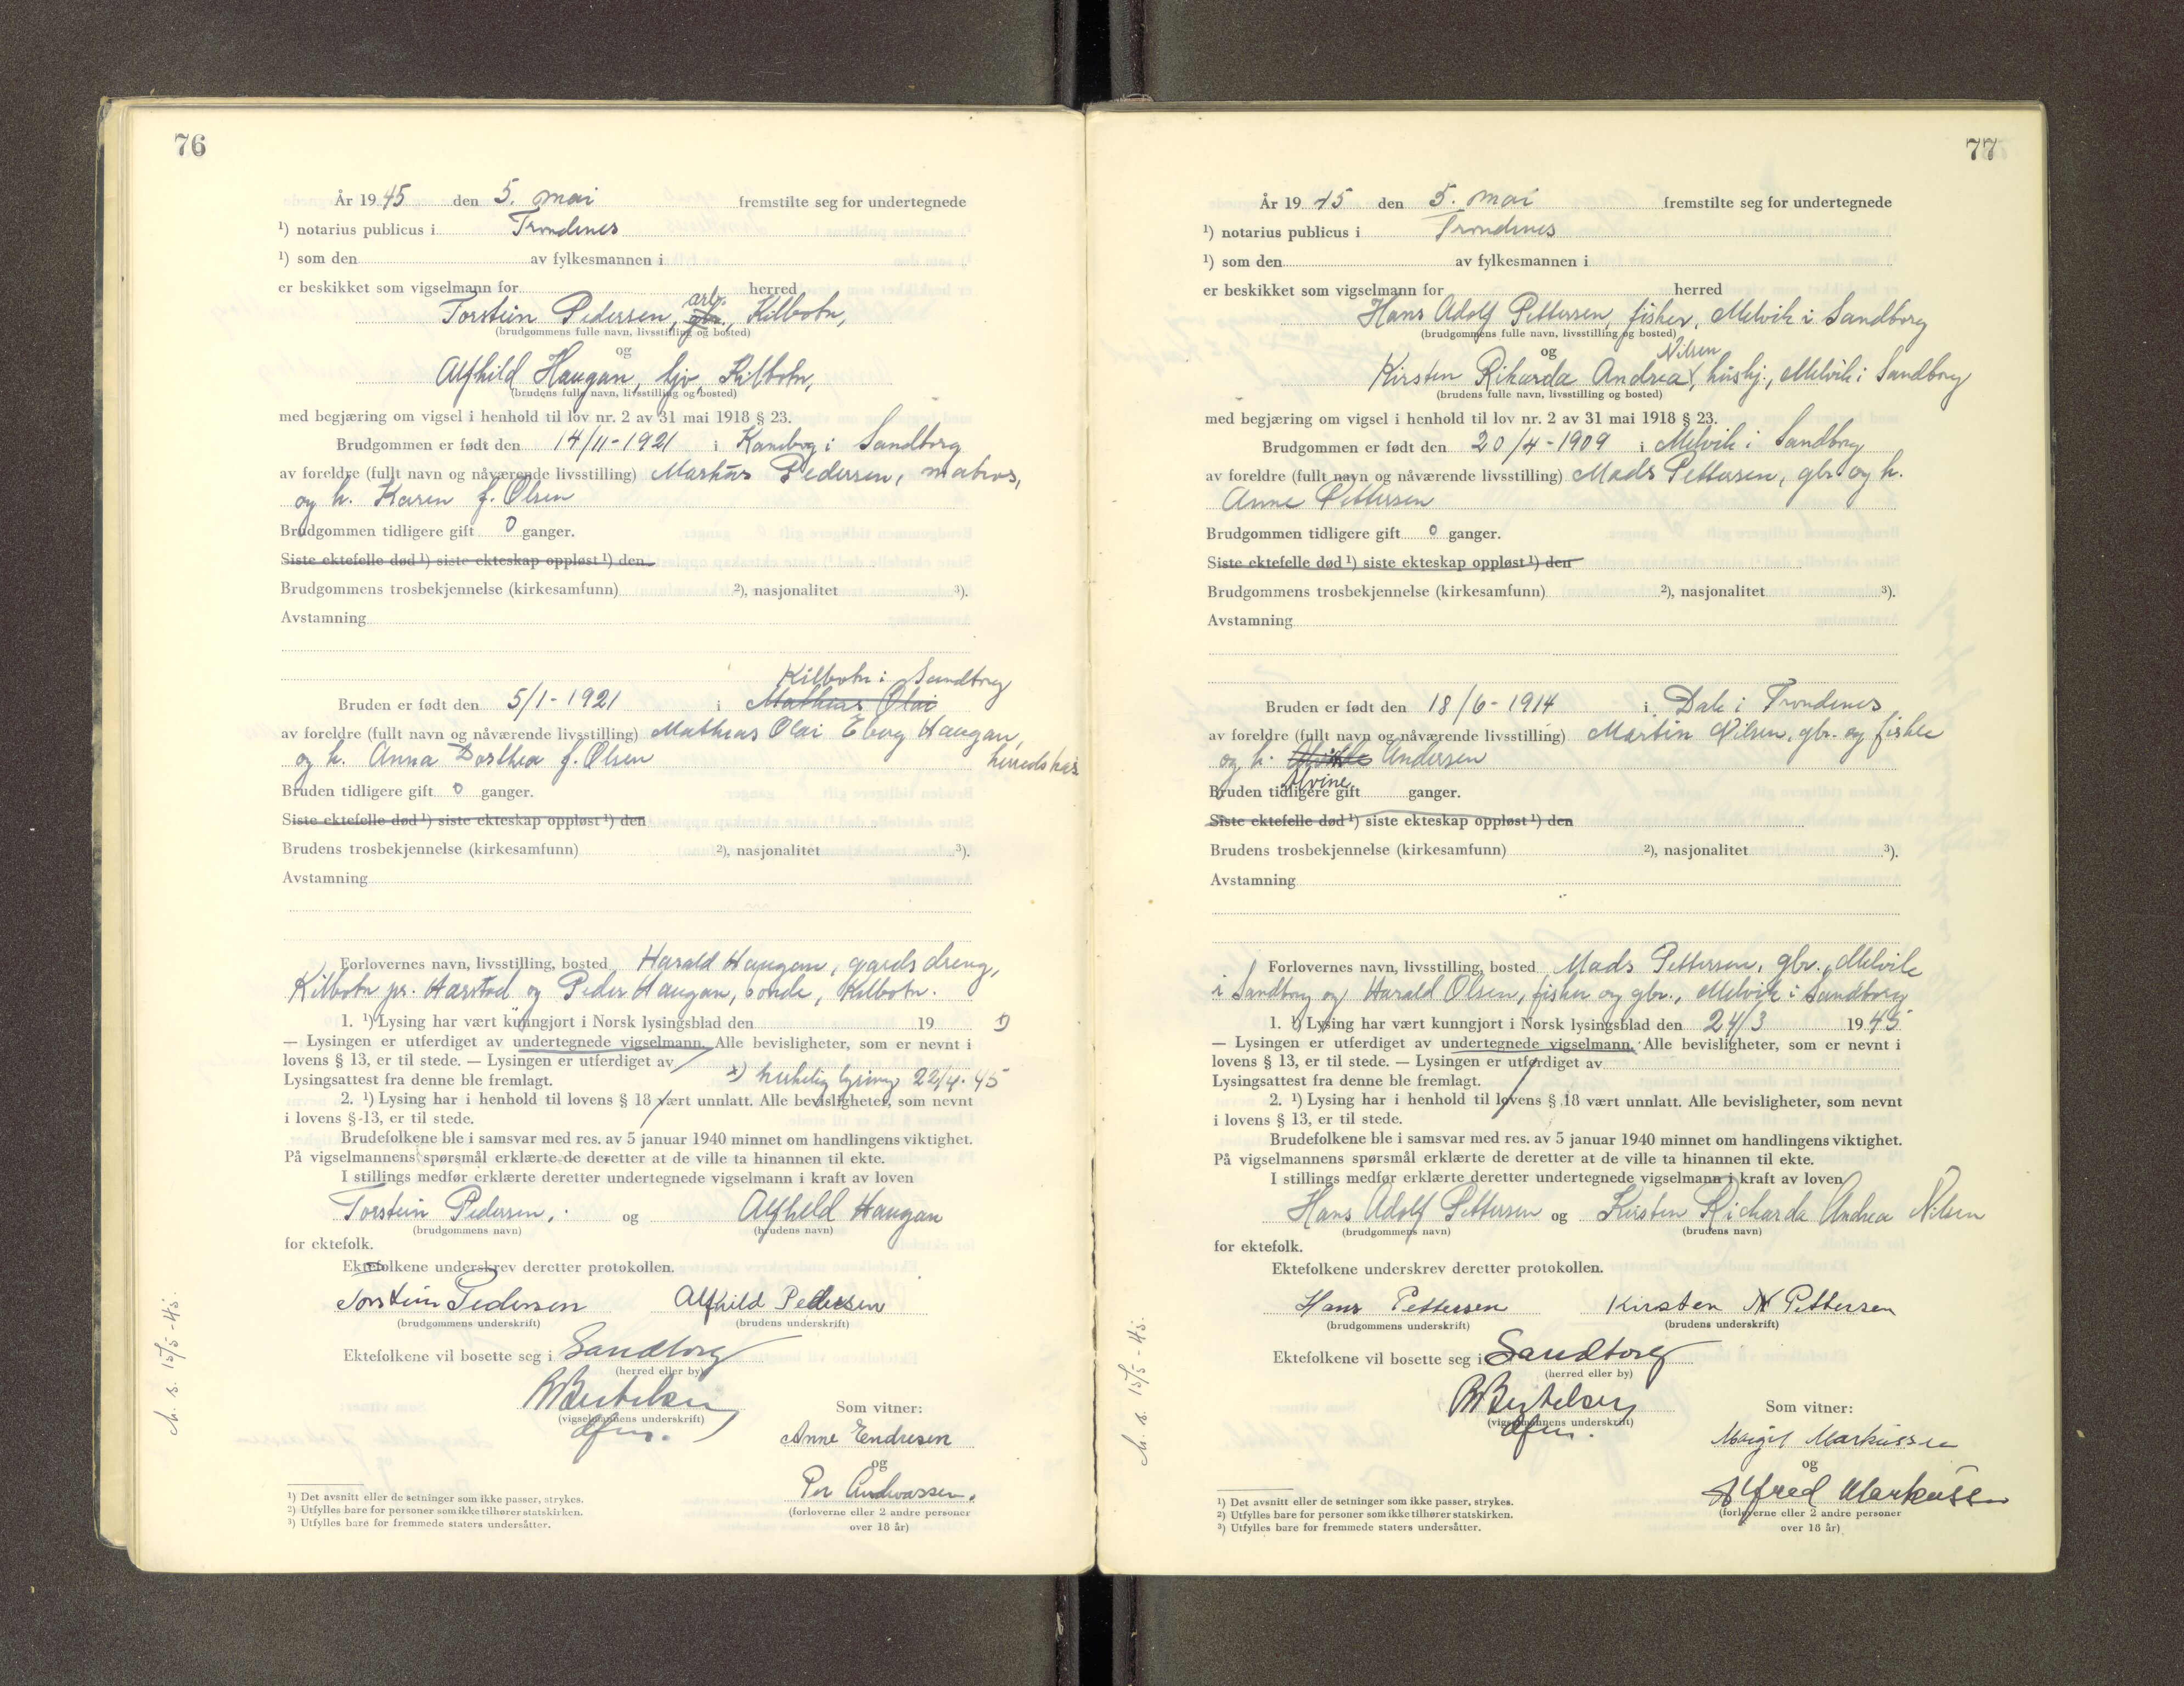 76
År 1945 den 5. mai fremstilte seg for undertegnede
¹) notarius publicus i Trondenes
¹) som den av fylkesmannen i
er beskikket som vigselmann for herred
arb.
Torstein Pedersen, gbr., Kilbotn,
(brudgommens fulle navn, livsstilling og bosted)
og
Alfhild Haugan, hjv, Kilbotn,
(brudens fulle navn, livsstilling og bosted)
med begjæring om vigsel i henhold til lov nr. 2 av 31 mai 1918 § 23.
Brudgommen er født den 14/11-1921 i Kanebog i Sandtorg
av foreldre (fullt navn og nåværende livsstilling) Markus Pedersen, matros,
og h. Karen f. Olsen
Brudgommen tidligere gift 0 ganger.
Siste ektefelle død ¹) siste ekteskap oppløst ¹) den
Brudgommens trosbekjennelse (kirkesamfunn) ²), nasjonalitet ³).
Avstamning
Kilbotn i Sandtorg
Bruden er født den 5/1-1921 i Mathias Olai
av foreldre (fullt navn og nåværende livsstilling) Mathias Olai Eberg Haugan,
og h. Anna Dorthea f. Olsen
Bruden tidligere gift 0 ganger.
Siste ektefelle død ¹) siste ekteskap oppløst ¹) den
Brudens trosbekjennelse (kirkesamfunn) ²), nasjonalitet ³).
Avstamning
Forlovernes navn, livsstilling, bosted Harald Haugan, gardsdreng,
Kilbotn pr. Harstad og Peder Haugan, bonde, Kilbotn.
1. ¹) Lysing har vært kunngjort i Norsk lysingsblad den 19 1)
— Lysingen er utferdiget av undertegnede vigselmann. Alle bevisligheter, som er nevnt i
lovens § 13, er til stede. — Lysingen er utferdiget av
Lysingsattest fra denne ble fremlagt. x) kirkelig lysing 22/4-45
2. ¹) Lysing har i henhold til lovens § 18 vært unnlatt. Alle bevisligheter, som nevnt
i lovens § 13, er til stede.
Brudefolkene ble i samsvar med res. av 5 januar 1940 minnet om handlingens viktighet.
På vigselmannens spørsmål erklærte de deretter at de ville ta hinannen til ekte.
I stillings medfør erklærte deretter undertegnede vigselmann i kraft av loven
Torstein Pedersen, og Alfhild Haugan
(brudgommens navn) (brudens navn)
for ektefolk.
Ektefolkene underskrev deretter protokollen.
Torstein Pedersen Alfhild Pedersen
(brudgommens underskrift) (brudens underskrift)
Ektefolkene vil bosette seg i Sandtorg
(herred eller by)
Bertelsen
(vigselmannens underskrift)
dfm.
Som vitner:
Anne Endresen
og
Per Andreassen.
(forloverne eller 2 andre personer
over 18 år)
¹) Det avsnitt eller de setninger som ikke passer, strykes.
²) Utfylles bare for personer som ikke tilhører statskirken.
³) Utfylles bare for fremmede staters undersåtter.
77
År 1945 den 5. mai fremstilte seg for undertegnede
¹) notarius publicus i Trondenes
¹) som den av fylkesmannen i
er beskikket som vigselmann for herred
Hans Adolf Pettersen, fisker, Melvik i Sandtorg
(brudgommens fulle navn, livsstilling og bosted)
og
Nilsen
Kirsten Rikarda Andrea, hushj., Melvik i Sandtorg
(brudens fulle navn, livsstilling og bosted)
med begjæring om vigsel i henhold til lov nr. 2 av 31 mai 1918 § 23.
Brudgommen er født den 20/4-1909 i Melvik i Sandtorg
av foreldre (fullt navn og nåværende livsstilling) Mads Pettersen, gbr. og h.
Anne Pettersen
Brudgommen tidligere gift 0 ganger.
Siste ektefelle død ¹) siste ekteskap oppløst ¹) den
Brudgommens trosbekjennelse (kirkesamfunn) ²), nasjonalitet ³).
Avstamning
Bruden er født den 18/6-1914 i Dale i Trondenes
av foreldre (fullt navn og nåværende livsstilling) Martin Nilsen, gbr. og fisker
og h. Andersen
Alvine
Bruden tidligere gift ganger.
Siste ektefelle død ¹) siste ekteskap oppløst ¹) den
Brudens trosbekjennelse (kirkesamfunn) ²), nasjonalitet ³).
Avstamning
Forlovernes navn, livsstilling, bosted Mads Pettersen, gbr., Melvik
i Sandtorg og Harald Olsen, fisker og gbr., Melvik i Sandtorg
1. ¹) Lysing har vært kunngjort i Norsk lysingsblad den 24/3 1945
— Lysingen er utferdiget av undertegnede vigselmann. Alle bevisligheter, som er nevnt i
lovens § 13, er til stede. — Lysingen er utferdiget av
Lysingsattest fra denne ble fremlagt.
2. ¹) Lysing har i henhold til lovens § 18 vært unnlatt. Alle bevisligheter, som nevnt
i lovens § 13, er til stede.
Brudefolkene ble i samsvar med res. av 5 januar 1940 minnet om handlingens viktighet.
På vigselmannens spørsmål erklærte de deretter at de ville ta hinannen til ekte.
I stillings medfør erklærte deretter undertegnede vigselmann i kraft av loven
Hans Adolf Pettersen og Kirsten Richarda Andrea Nilsen
(brudgommens navn) (brudens navn)
for ektefolk.
Ektefolkene underskrev deretter protokollen.
Hans Pettersen Kirsten N Pettersen
(brudgommens underskrift) (brudens underskrift)
Ektefolkene vil bosette seg i Sandtorg
(herred eller by)
Bertelsen
(vigselmannens underskrift)
dfm.
Som vitner:
Margit Markussen
og
Alfred Markussen
(forloverne eller 2 andre personer
over 18 år)
¹) Det avsnitt eller de setninger som ikke passer, strykes.
²) Utfylles bare for personer som ikke tilhører statskirken.
³) Utfylles bare for fremmede staters undersåtter.